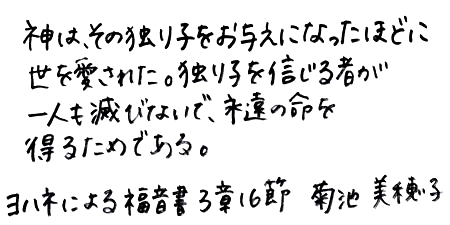 神は、その独り子をお与えになったほどに
世を愛された。独り子を信じる者が
一人も滅びないで、永遠の命を
得るためである。
ヨハネによる福音書 3章16節 菊池 美穂子